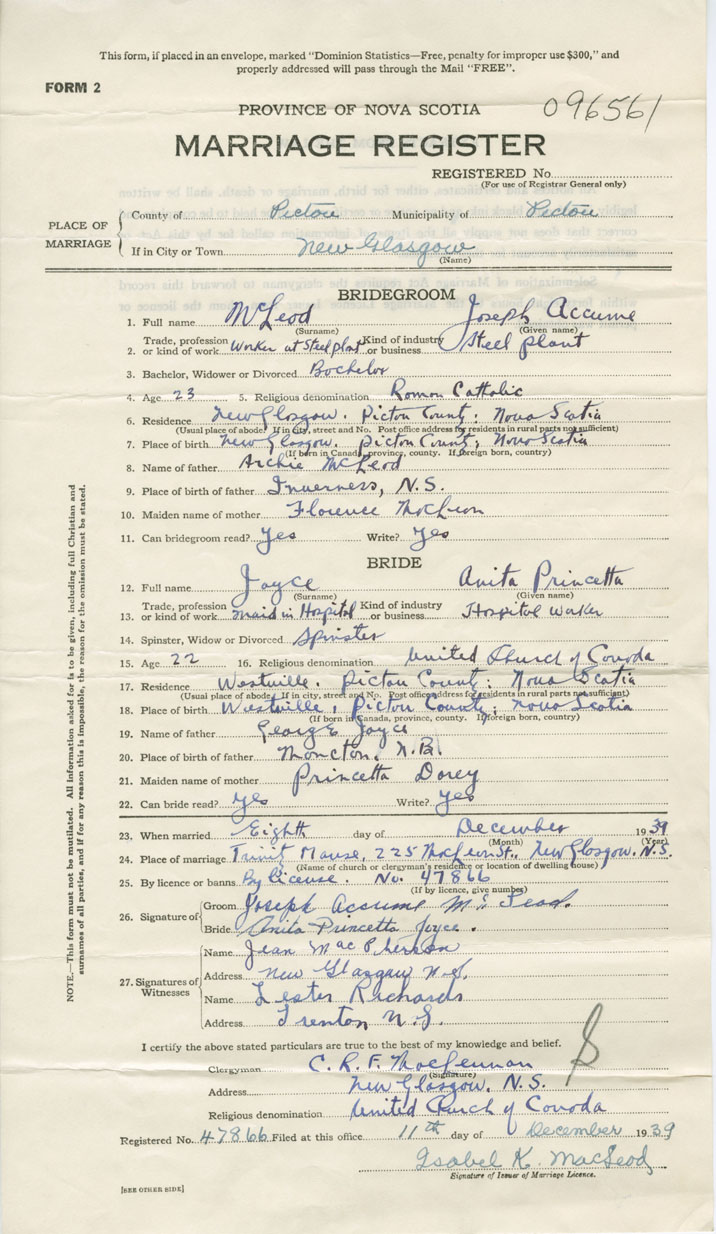 This form, if placed in an envelope, marked "Dominion Statistics—Free, penalty for improper use $300," and
properly addressed will pass through the Mail "FREE".
FORM 2
PROVINCE OF NOVA SCOTIA 096561
MARRIAGE REGISTER
REGISTERED No.
(For use of Registrar General only)
PLACE OF MARRIAGE
County of Pictou Municipality of Pictou
If in City or Town New Glasgow
(Name)
BRIDEGROOM
1. Full name McLeod Joseph Accume
(Surname) (Given name)
2. Trade, profession or kind of work Worker at Steel plant Kind of industry or business Steel plant
3. Bachelor, Widower or Divorced Bachelor
4. Age 23 5. Religious denomination Roman Catholic
6. Residence New Glasgow. Pictou County. Nova Scotia
(Usual place of abode. If in city, street and No. Post office address for residents in rural parts not sufficient)
7. Place of birth New Glasgow. Pictou County; Nova Scotia
(If born in Canada, province, county. If foreign born, country)
8. Name of father Archie McLeod
9. Place of birth of father Inverness, N.S.
10. Maiden name of mother Florence
11. Can bridegroom read? Yes Write? Yes
BRIDE
12. Full name Joyce Anita Princetta
(Surname) (Given name)
13. Trade, profession or kind of work Maid in Hospital Kind of industry or business Hospital worker
14. Spinster, Widow or Divorced Spinster
15. Age 22 16. Religious denomination United Church of Canada
17. Residence Westville. Pictou County: Nova Scotia
(Usual place of abode. If in city, street and No. Post office address for residents in rural parts not sufficient)
18. Place of birth Westville, Pictou County; Nova Scotia
(If born in Canada, province, county. If foreign born, country)
19. Name of father George Joyce
20. Place of birth of father Moncton, N.B.
21. Maiden name of mother Princetta Dorey
22. Can bride read? Yes Write? Yes
23. When married Eighth day of December 1939
(Month) (Year)
24. Place of marriage Trinit Manse, 225 St., New Glasgow. N.S.
(Name of church or clergyman's residence or location of dwelling house)
25. By licence or banns By license. No. 47866
(If by licence, give number)
26. Signature of
Groom Joseph Accume McLeod.
Bride Anita Princetta Joyce.
27. Signatures of Witnesses
Name Jean MacPherson
Address New Glasgow N.S.
Name Lester Richards
Address Trenton N.S.
I certify the above stated particulars are true to the best of my knowledge and belief.
Clergyman C. R. F. MacLennan
(Signature)
Address New Glasgow. N.S.
Religious denomination United Church of Canada
Registered No. 47866 Filed at this office 11th day of December 1939
Isabel K. MacLeod
Signature of Issuer of Marriage Licence.
[SEE OTHER SIDE]
NOTE.—This form must not be mutilated. All information asked for is to be given, including full Christian and
surnames of all parties, and if for any reason this is impossible, the reason for the omission must be stated.